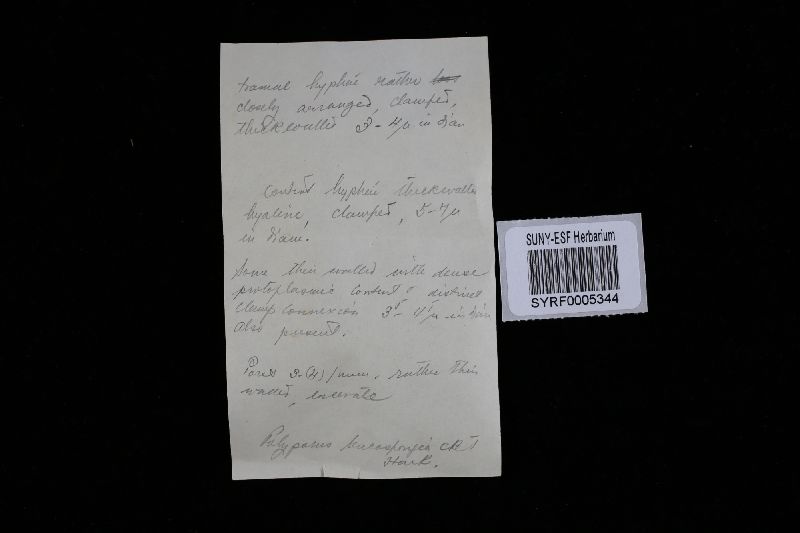 tramal hyphae rather
closely arranged, clamped,
thickwalled 3-4µ in diam
Context hyphae thickwalled
hyaline, clamped, 5-7µ
in diam.
Some thin walled with dense
protoplasmic content & distinct
clamp connexion 3-4µ in diam
also present.
Pores 3-(4)/mm, rather thin
walled, lacerate
Polyporus leucospongia C&
Hark.
SUNY-ESF Herbarium
SYRF0005344